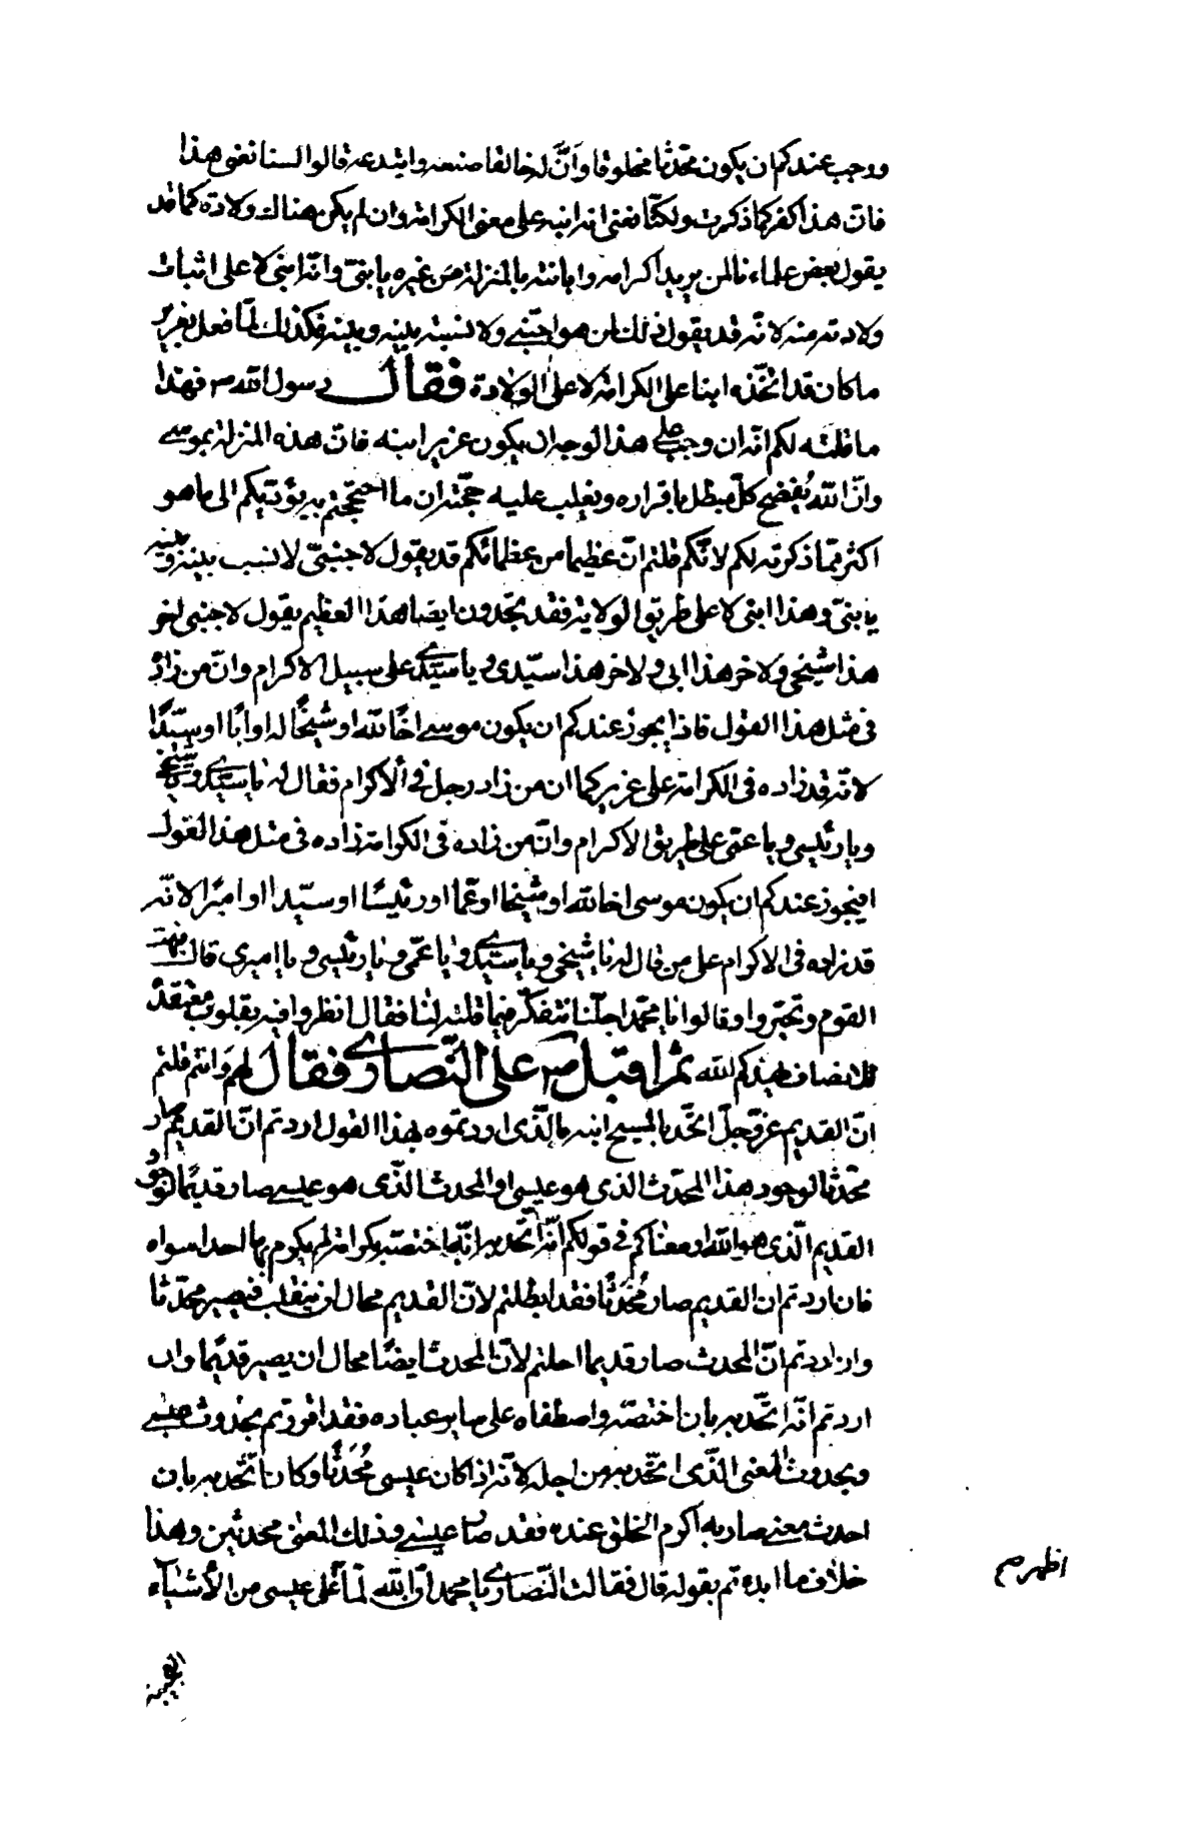 ووجب عندكم ان يكون محدثا مخلوقا وانّ له خالقا صنعه وابتدعه قالوا لسنا نعنى هذا
فانّ هذا كفر كما ذكرت ولكنّا نعنى انه ابنه على معنى الكرامة وان لم يكن هناك ولادة كما قد
يقول بعض علمائنا لمن يريد اكرامه وابانته بالمنزلة من غيره يا بنىّ وانّه ابنى لا على اثبات
ولادته منه لانّه قد يقول ذلك لمن هو اجنبى ولا نسبة بينه وبينه فكذلك لمّا فعل بعزير
ما كان قد اتّخذه ابنا على الكرامة لا على الولادة فقال رسول الله ص فهذا
ما قلته لكم انّه ان وجب على هذا الوجه ان يكون عزير ابنه فانّ هذه المنزلة بموسى
وانّ الله يُفضح كلّ مبطل باقراره ويقلب عليه حجّته ان ما احتججتم به يؤدّيكم الى ما هو
اكثر ممّا ذكرته لكم لانّكم قلتم انّ عظيما من عظمائكم قد يقول لاجنبىّ لا نسب بينه وبينه
يا بنىّ وهذا ابنى لا على طريق الولاية فقد تجدون ايضا هذا العظيم يقول لاجنبى اخر
هذا شيخى ولاخر هذا ابى ولاخر هذا سيّدى ويا سيّدى على سبيل الاكرام وانّ من زاده
فى مثل هذا القول فاذا يجوز عندكم ان يكون موسى اخًا لله او شيخًا له او ابًا او سيّدًا
لانّه قد زاده فى الكرامة على عزير كما ان من زاد رجل فى الاكرام فقال له يا سيّدى ويا شيخى
ويا رئيسى ويا عمى على طريق الاكرام وانّ من زاده فى الكرامة زاده فى مثل هذا القول
افيجوز عندكم ان يكون موسى اخا لله او شيخا او عمّا او رئيسًا او سيّدا او اميرًا لانّه
قد زاده فى الاكرام على من قال له يا شيخى ويا سيّدى ويا عمّى ويا رئيسى ويا اميرى قال فبهت
القوم وتحيّروا وقالوا يا محمّد اجّلنا نتفكّر فيما قلته لنا فقال انظروا فيه بقلوب معتقدة
للانصاف يهدكم الله ثم اقبل ص على النّصارى فقال لهم وانتم قلتم
انّ القديم عزّ وجلّ اتّحد بالمسيح ابنه ما الّذى اردتموه بهذا القول اردتم انّ القديم صار
محدثا لوجود هذا المحدث الذى هو عيسى او المحدث الّذى هو عيسى صار قديمًا لوجود
القديم الّذى هو الله او معناكم فى قولكم انّه اتّحد به انّه اختصّه بكرامة لم يكرم بها احدا سواه
فان اردتم ان القديم صار مُحدَثًا فقد ابطلتم لانّ القديم محال ان ينقلب فيصير محدثا
وان اردتم انّ المحدث صار قديما احلتم لانّ المحدث ايضًا محال ان يصير قديمًا وان
اردتم انّه اتّحد به بان اختصّه واصطفاه على ساير عباده فقد اقررتم بحدوث عيسى
وبحدوث المعنى الّذى اتّحد به من اجله لانّه اذا كان عيسى مُحدَثًا وكان اتّحد به بان
احدث معنى صار به اكرم الخلق عنده فقد صار عيسى وذلك المعنى محدثين وهذا
خلاف ما ابدءتم بقوله قال فقالت النّصارى يا محمد انّ الله لمّا اظهر على عيسى من الاشياء
اظهر صح
العجيبة